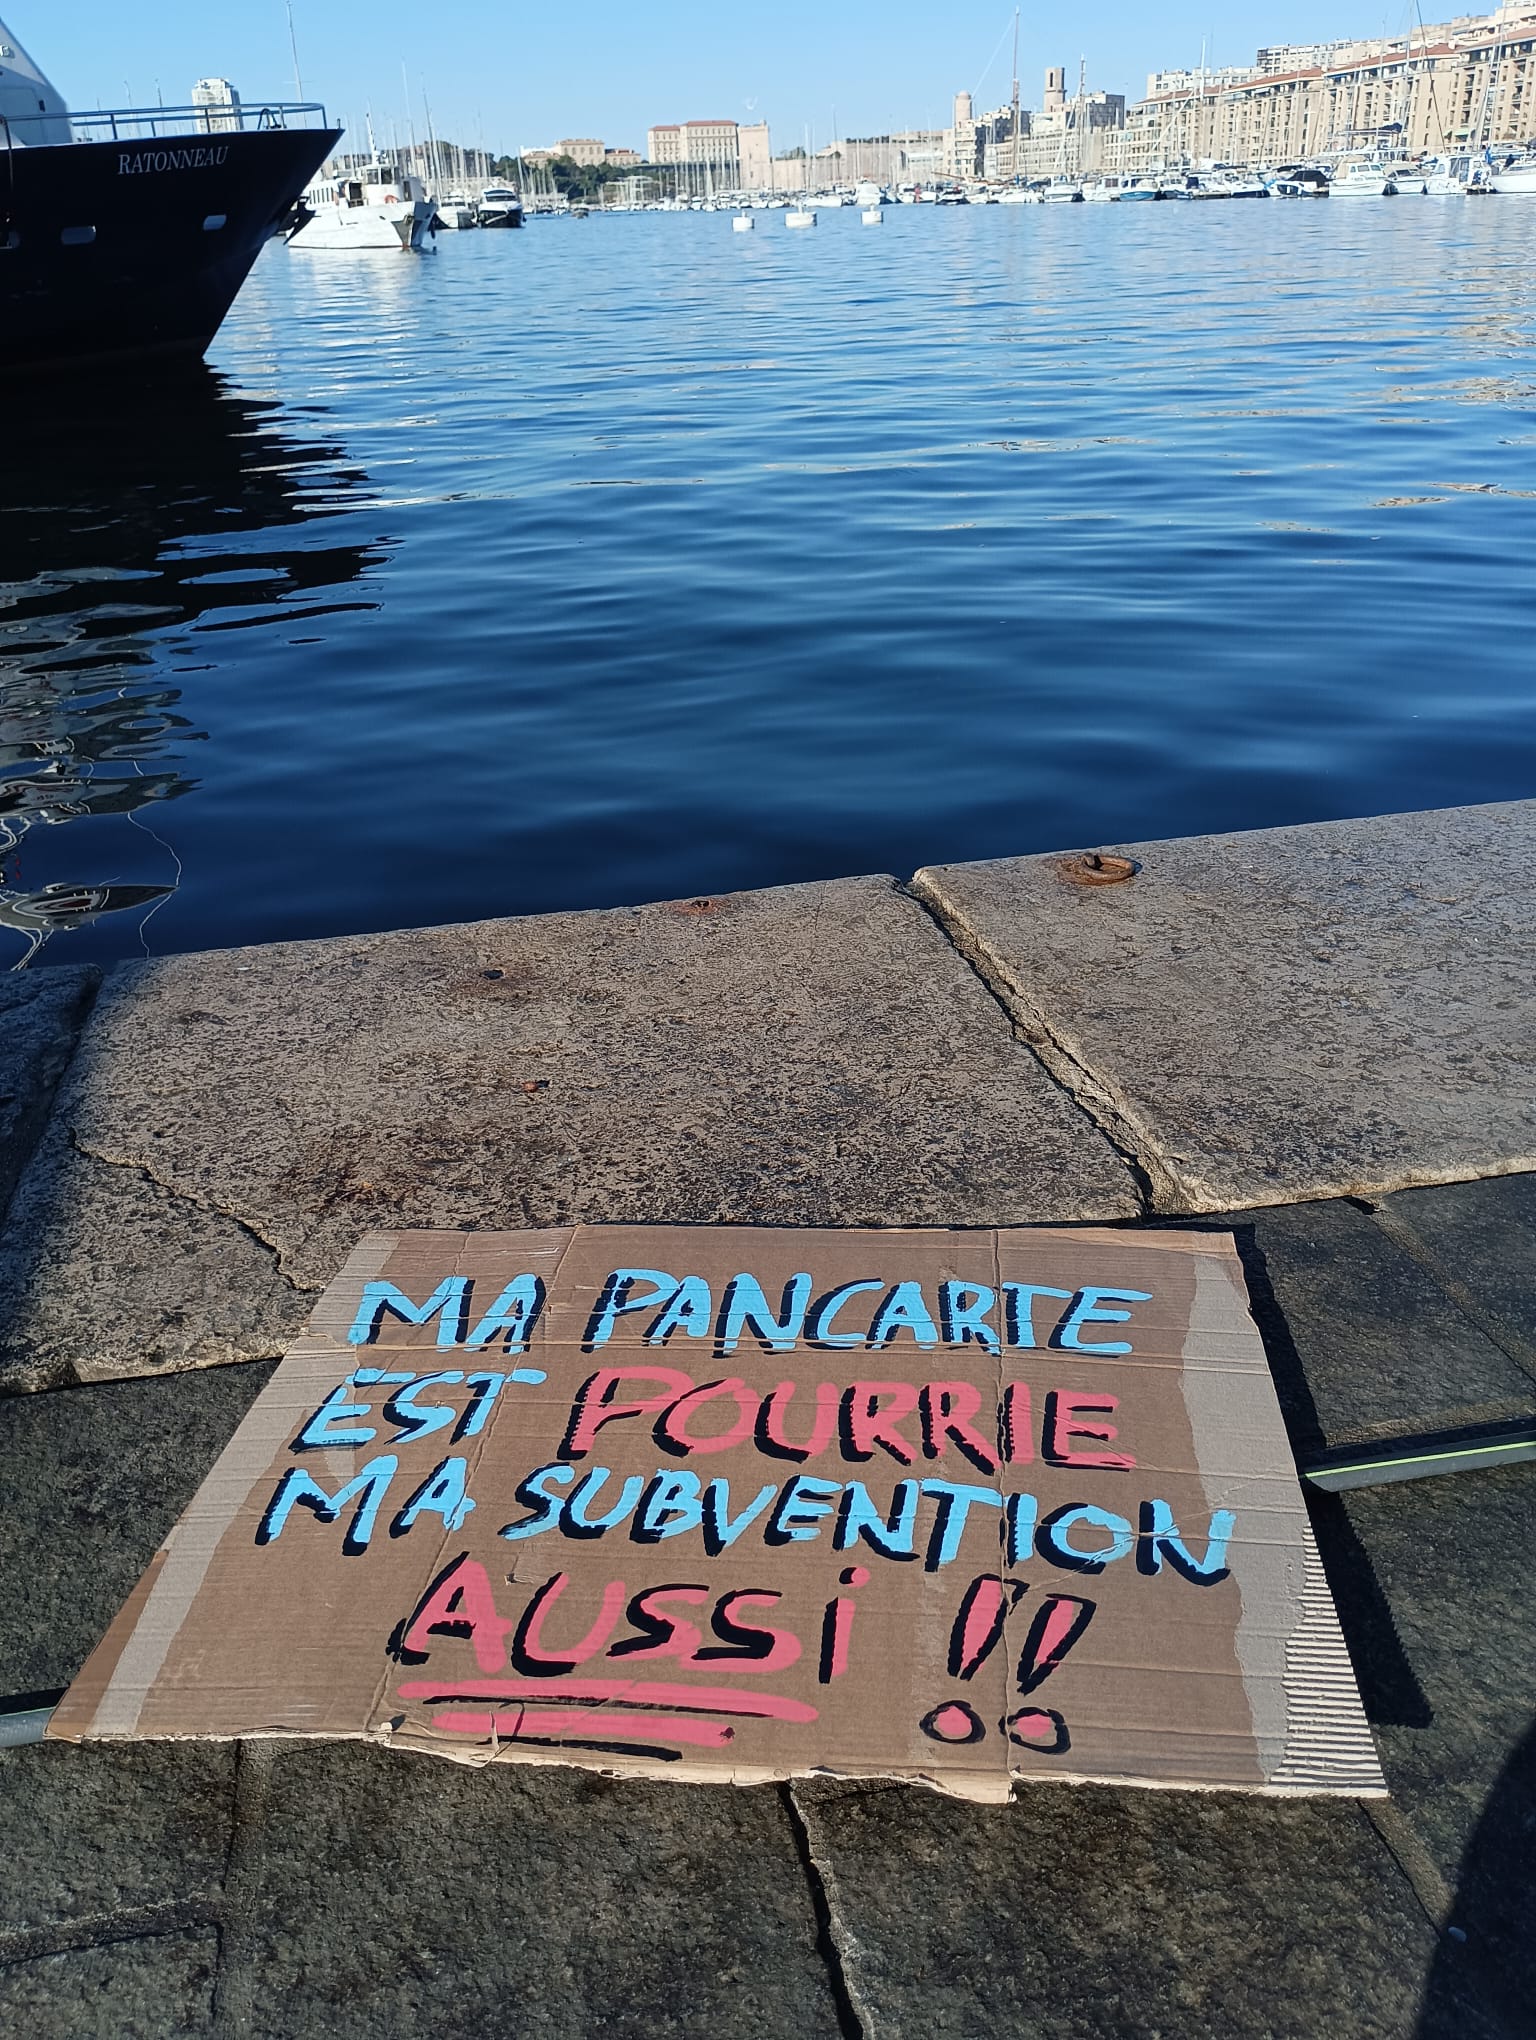 RATONNEAU
MA PANCARTE
EST POURRIE
MA SUBVENTION
AUSSi !!